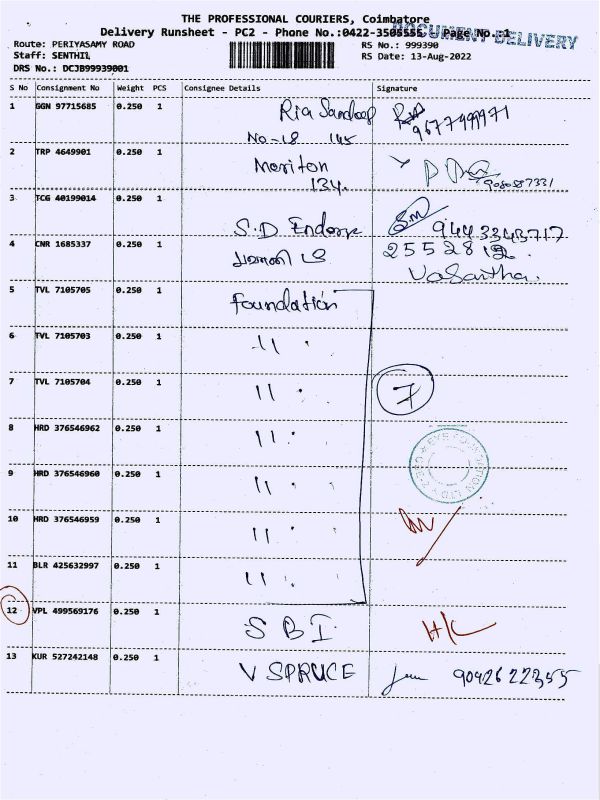 THE PROFESSIONAL COURIERS, Coimbatore
Delivery Runsheet - PC2 - Phone No.:0422-3505555 Page No.:1
DOCUMENT DELIVERY
Route: PERIYASAMY ROAD RS No.: 999390
Staff: SENTHIL RS Date: 13-Aug-2022
DRS No.: DCJB99939001
S No Consignment No Weight PCS Consignee Details Signature
1 GGN 97715685 0.250 1 Ria Sandeep
No-18 145
2 TRP 4649901 0.250 1 Meriton
134.
3 TCG 40199014 0.250 1
S.D S.M 9443343717
4 CNR 1685337 0.250 1 25528
Vasantha.
5 TVL 7105705 0.250 1 Foundation
6 TVL 7105703 0.250 1 "
7 TVL 7105704 0.250 1 " 7
8 HRD 376546962 0.250 1 "
9 HRD 376546960 0.250 1 "
10 HRD 376546959 0.250 1 "
11 BLR 425632997 0.250 1 "
12 VPL 499569176 0.250 1 SBI H/C
13 KUR 527242148 0.250 1 V SPRUCE 9042622355